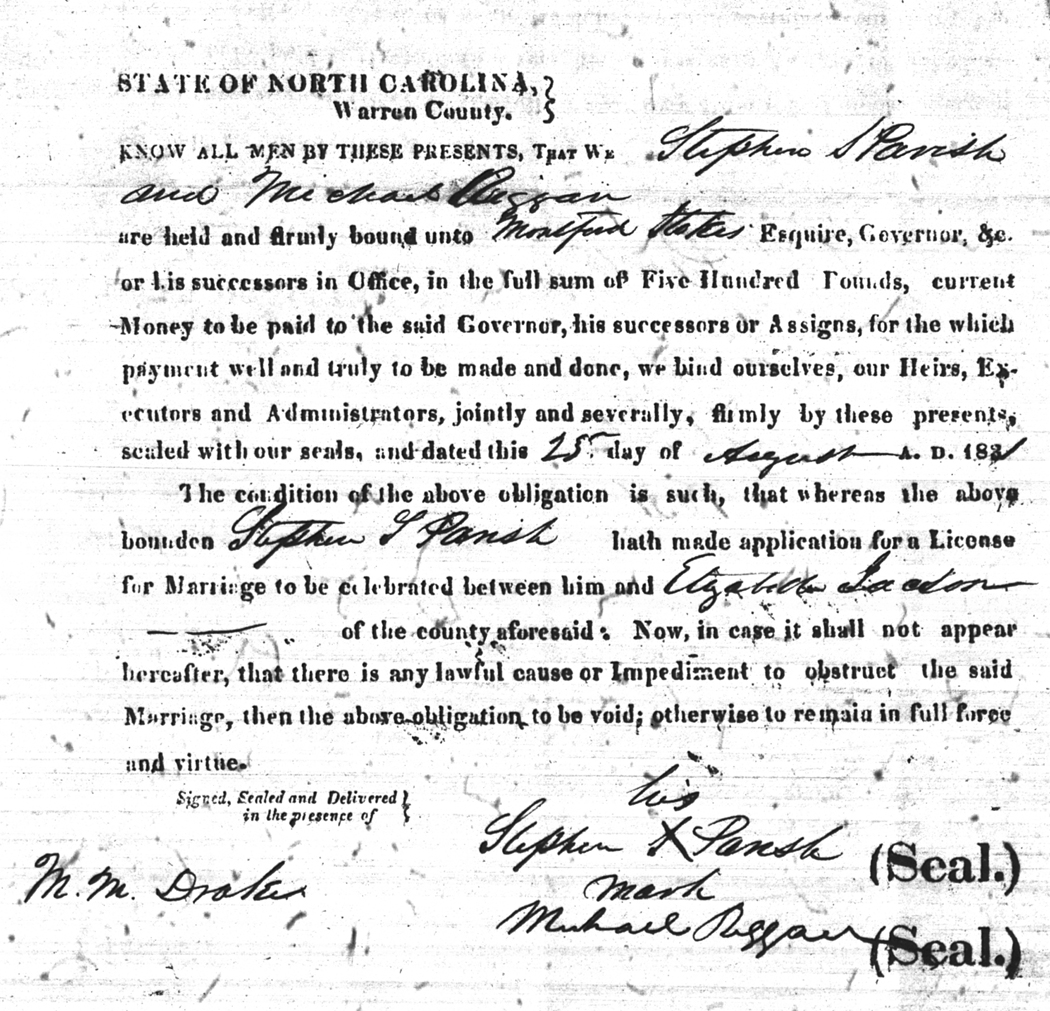 STATE OF NORTH CAROLINA,
Warren County.
KNOW ALL MEN BY THESE PRESENTS, THAT WE Stephen S Parish
and Michael Riggan
are held and firmly bound unto Montford Stokes Esquire, Governor, &c.
or his successors in Office, in the full sum of Five Hundred Pounds, current
Money to be paid to the said Governor, his successors or Assigns, for the which
payment well and truly to be made and done, we bind ourselves, our Heirs, Ex-
ecutors and Administrators, jointly and severally, firmly by these presents,
sealed with our seals, and dated this 25 day of August A. D. 1831
The condition of the above obligation is such, that whereas the above
bounden Stephen S Parish hath made application for a License
for Marriage to be celebrated between him and Elizabeth Jackson
of the county aforesaid: Now, in case it shall not appear
hereafter, that there is any lawful cause or Impediment to obstruct the said
Marriage, then the above obligation to be void; otherwise to remain in full force
and virtue.
Signed, Sealed and Delivered
in the presence of
his
Stephen X Parish (Seal.)
mark
M. M. Drake
Michael Riggan (Seal.)